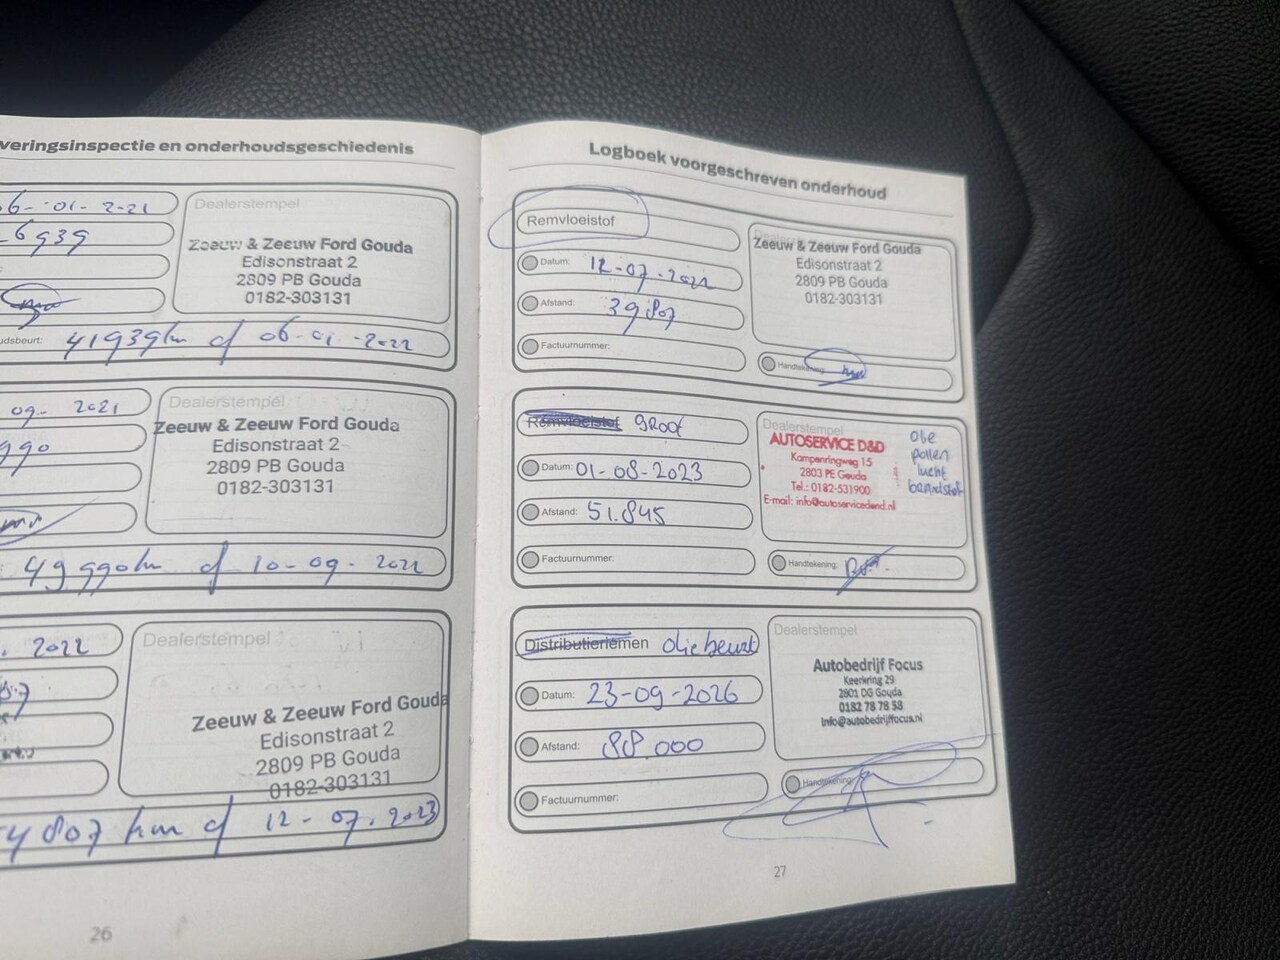 veringsinspectie en onderhoudsgeschiedenis
06-01-2021
6939
Dealerstempel
Zeeuw & Zeeuw Ford Gouda
Edisonstraat 2
2809 PB Gouda
0182-303131
udsbeurt: 41939km of 06-01-2022
09-2021
990
Dealerstempel
Zeeuw & Zeeuw Ford Gouda
Edisonstraat 2
2809 PB Gouda
0182-303131
49990km of 10-09-2022
2022
Dealerstempel
Zeeuw & Zeeuw Ford Gouda
Edisonstraat 2
2809 PB Gouda
0182-303131
4807 km of 12-07-2023
26
Logboek voorgeschreven onderhoud
Remvloeistof
Datum: 12-07-2022
Afstand: 39807
Factuurnummer:
Zeeuw & Zeeuw Ford Gouda
Edisonstraat 2
2809 PB Gouda
0182-303131
Handtekening:
Remvloeistof groot
Datum: 01-08-2023
Afstand: 51.845
Factuurnummer:
Dealerstempel
AUTOSERVICE D&D
Kampenringweg 15
2803 PE Gouda
Tel.: 0182-531900
E-mail: info@autoservicedend.nl
olie
pollen
lucht
brandstof
Handtekening:
Distributieriemen oliebeurt
Datum: 23-09-2026
Afstand: 88.000
Factuurnummer:
Dealerstempel
Autobedrijf Focus
Keerkring 29
2801 DG Gouda
0182 78 78 58
Info@autobedrijffocus.nl
Handtekening:
27